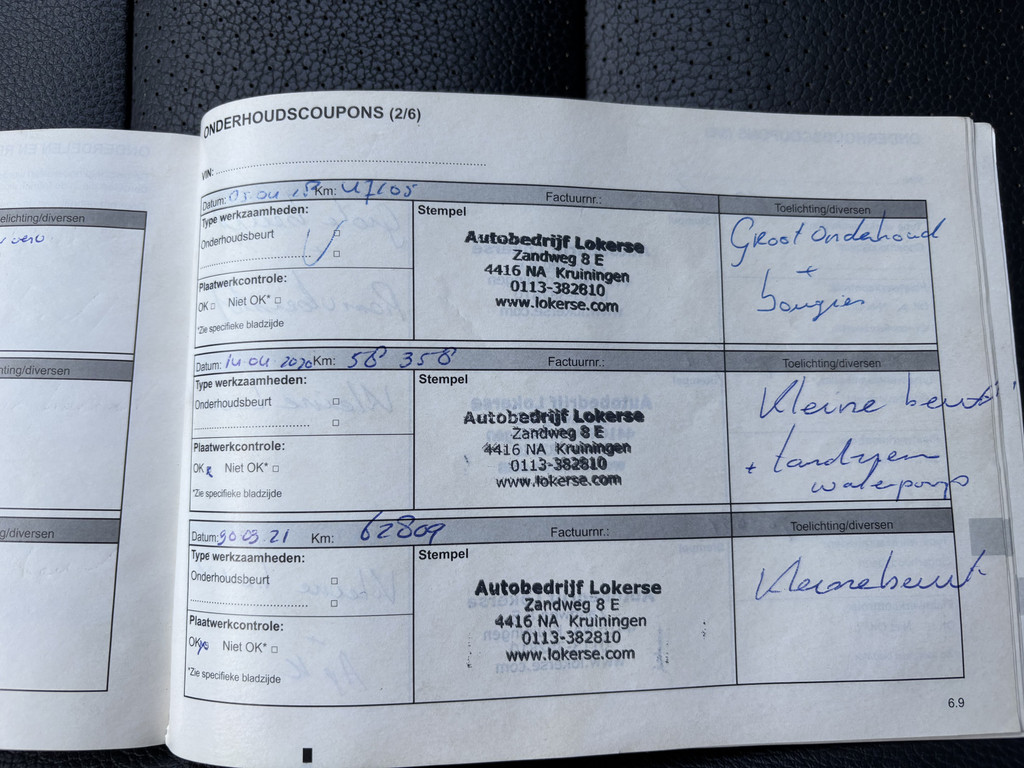 ONDERHOUDSCOUPONS (2/6)
VIN:
Datum: 05.04 Km: 47105 Factuurnr.: Toelichting/diversen
Type werkzaamheden:
Onderhoudsbeurt
Plaatwerkcontrole:
OK Niet OK*
*Zie specifieke bladzijde
Stempel
Autobedrijf Lokerse
Zandweg 8 E
4416 NA Kruiningen
0113-382810
www.lokerse.com
Groot onderhoud
+
bougies
Datum: 14.04.2020 Km: 58 358 Factuurnr.: Toelichting/diversen
Type werkzaamheden:
Onderhoudsbeurt
Plaatwerkcontrole:
OK Niet OK*
*Zie specifieke bladzijde
Stempel
Autobedrijf Lokerse
Zandweg 8 E
4416 NA Kruiningen
0113-382810
www.lokerse.com
Kleine beurt
+ tandriem
waterpomp
Datum: 30 03.21 Km: 62809 Factuurnr.: Toelichting/diversen
Type werkzaamheden:
Onderhoudsbeurt
Plaatwerkcontrole:
OK Niet OK*
*Zie specifieke bladzijde
Stempel
Autobedrijf Lokerse
Zandweg 8 E
4416 NA Kruiningen
0113-382810
www.lokerse.com
Kleine beurt
6.9